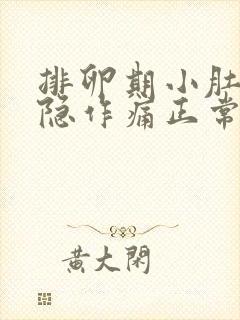 排卵期小肚
隐作痛正常
黄大閑